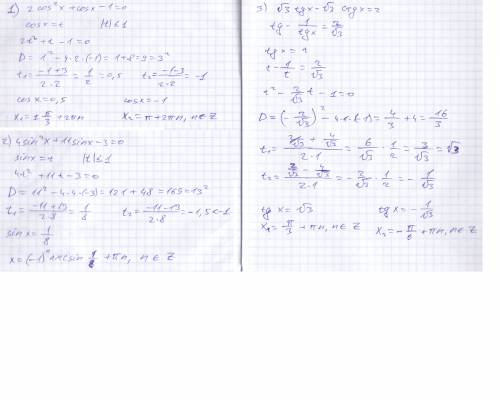 1) 2cos²x + cosx - 1 = 0
cosx = t |t| ≤ 1
2t² + t - 1 = 0
D = 1² - 4·2·(-1) = 1+8 = 9 = 3²
t₁ = (-1+3)/(2·2) = 1/2 = 0,5 t₂ = (-1-3)/(2·2) = -1
cosx = 0,5 cosx = -1
x₁ = ± π/3 + 2πn x₂ = π + 2πn, n∈Z
2) 4sin²x + 11sinx - 3 = 0
sinx = t |t| ≤ 1
4t² + 11t - 3 = 0
D = 11² - 4·4·(-3) = 121 + 48 = 169 = 13²
t₁ = (-11+13)/(2·8) = 1/8 t₂ = (-11-13)/(2·8) = -1,5 < -1
sin x = 1/8
x = (-1)ⁿ arcsin 1/8 + πn, n ∈ Z
3) √3 tgx - √3 ctgx = 2
tg - 1/tgx = 2/√3
tgx = t
t - 1/t = 2/√3
t² - 2/√3 t - 1 = 0
D = (-2/√3)² - 4·1·(-1) = 4/3 + 4 = 16/3
t₁ = (2/√3 + 4/√3)/(2·1) = 6/√3 · 1/2 = 3/√3 = √3
t₂ = (2/√3 - 4/√3)/(2·1) = -2/√3 · 1/2 = -1/√3
tg x = √3 tg x = -1/√3
x₁ = π/3 + πn, n∈Z x₂ = -π/6 + πn, n∈Z